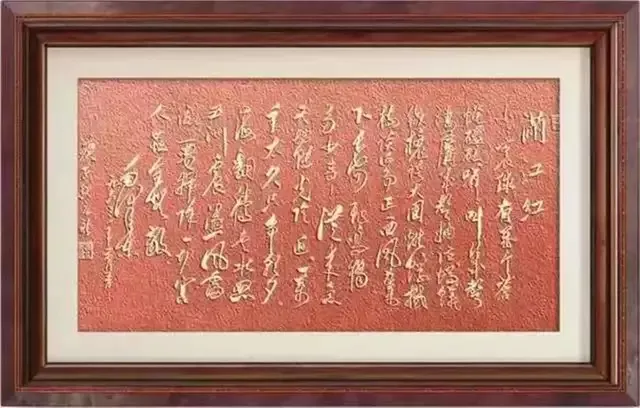 满江红
小小寰球有几个苍
蝇碰壁嗡嗡叫几声凄
厉几声抽泣蚂蚁
缘槐夸大国蚍蜉撼
树谈何易正西风落叶
下长安飞鸣镝
多少事从来急
天地转光阴迫一万
年太久只争朝夕四
海翻腾云水怒
五洲震荡风雷
激要扫除一切害
人虫全无敌
毛泽东